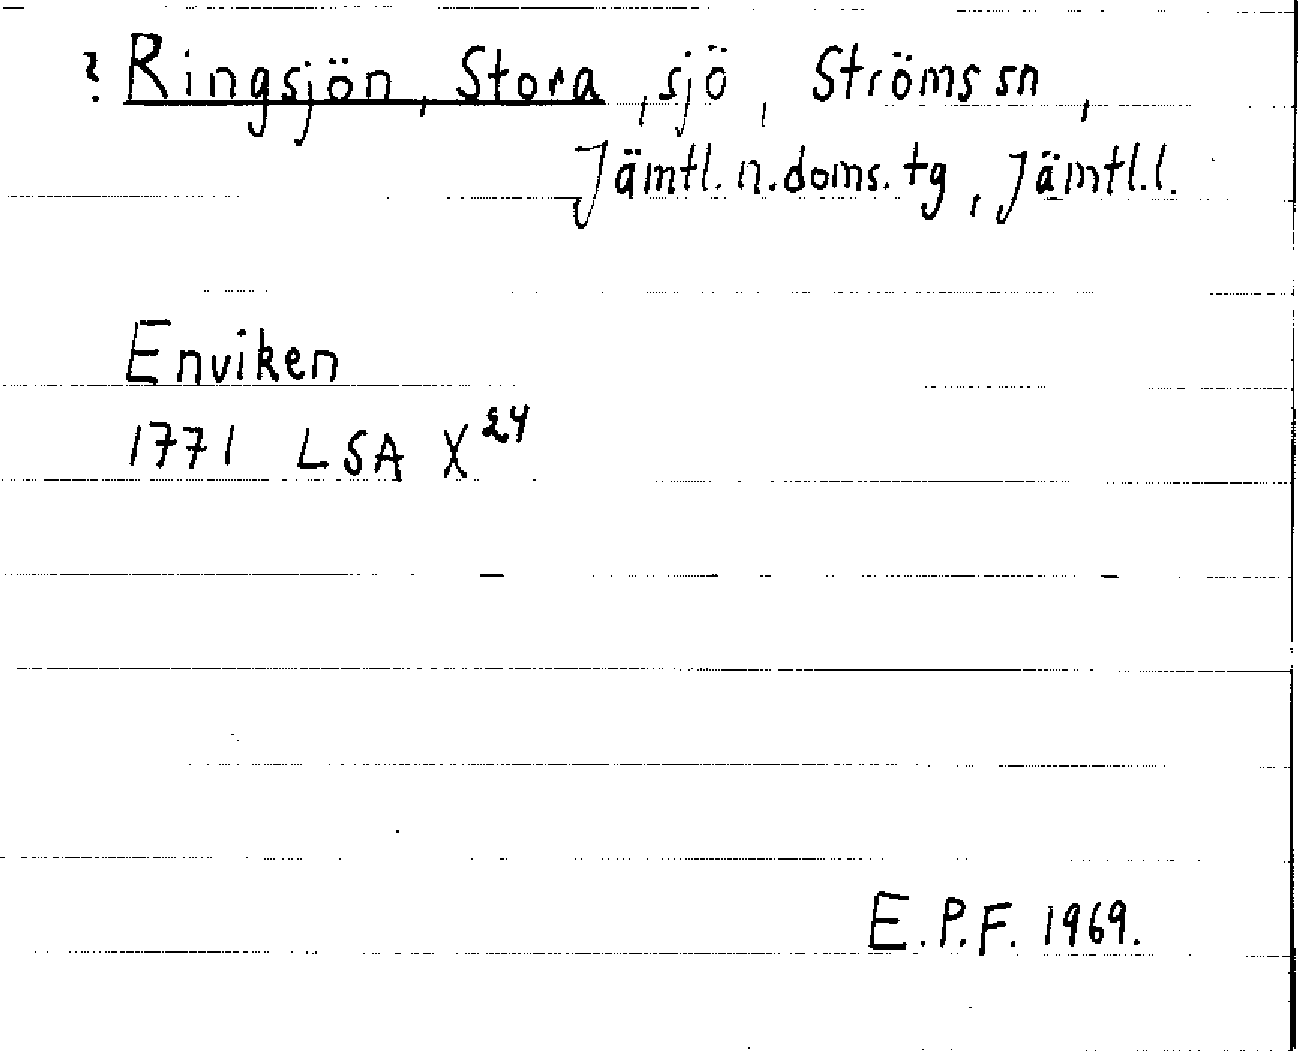 ? Ringsjön, Stora, sjö, Ströms sn,
Jämtl. n. doms. tg, Jämtl. l.
Enviken
1771 LSA X²⁴
E.P.F. 1969.